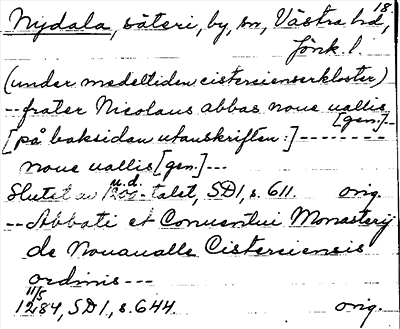 18
Nydala, säteri, by, sn, Västra hd,
Jönk. l.
(under medeltiden cistersienserkloster)
-- frater Nicolaus abbas noue uallis
[gen.]--
[på baksidan utanskriften:] --------
noue uallis [gen.] ---
u.d.
Slutet av 1200-talet, SD1, s. 611. orig.
-- Abbati et Conuentui Monasterij
de Nouaualle Cisterciensis
ordinis ---
11/5
1284, SD1, s. 644. orig.